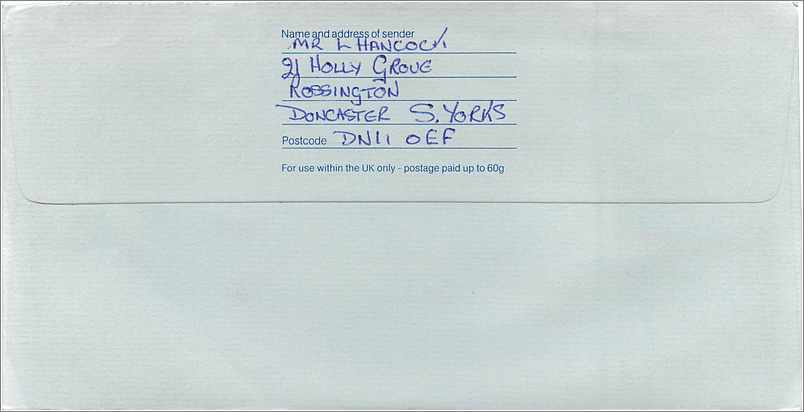 Name and address of sender
MR L HANCOCK
21 HOLLY GROVE
ROSSINGTON
DONCASTER S. YORKS
Postcode DN11 0EF
For use within the UK only - postage paid up to 60g